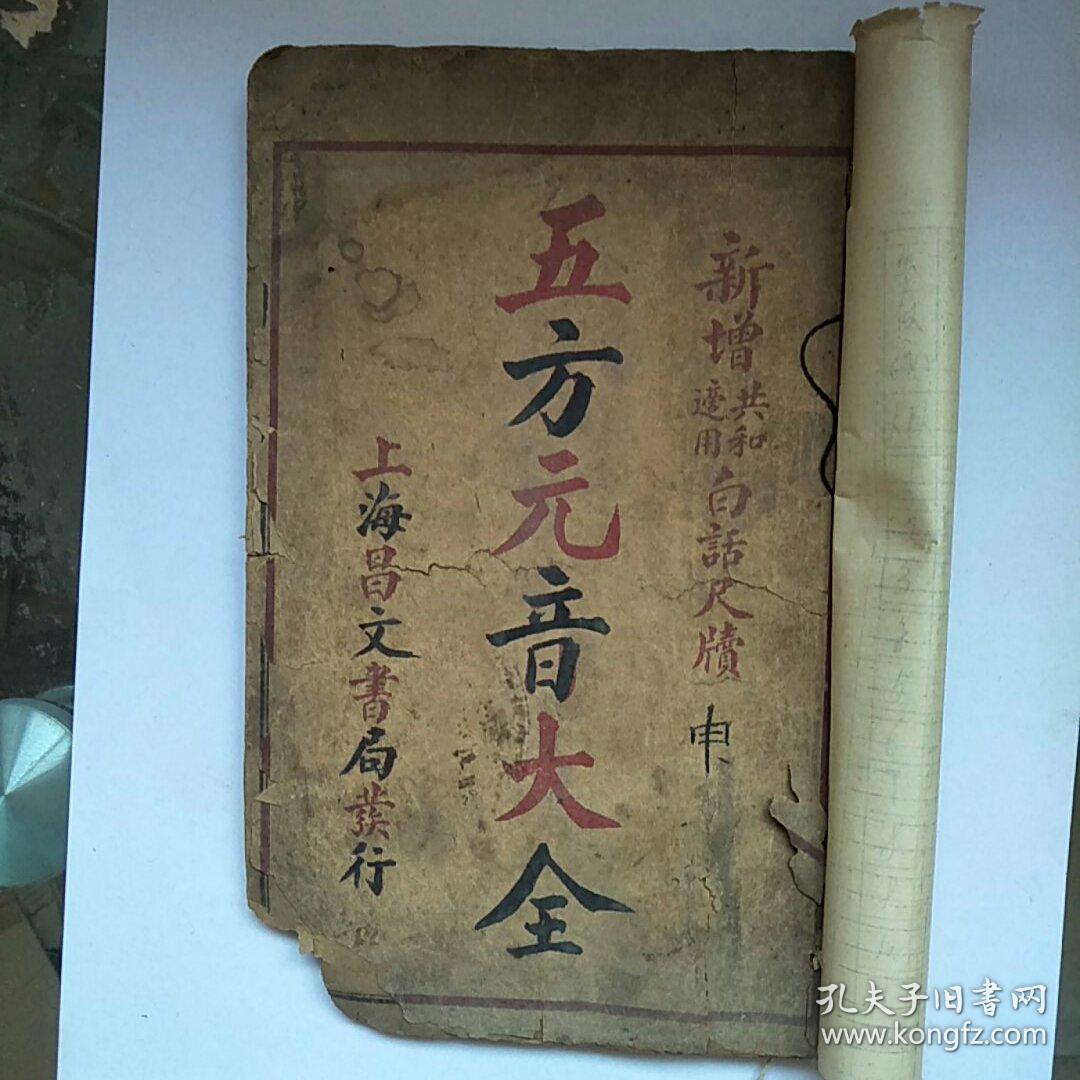 新增共和適用白話尺牘 申
五方元音大全
上海昌文書局發行
孔夫子旧書网
www.kongfz.com